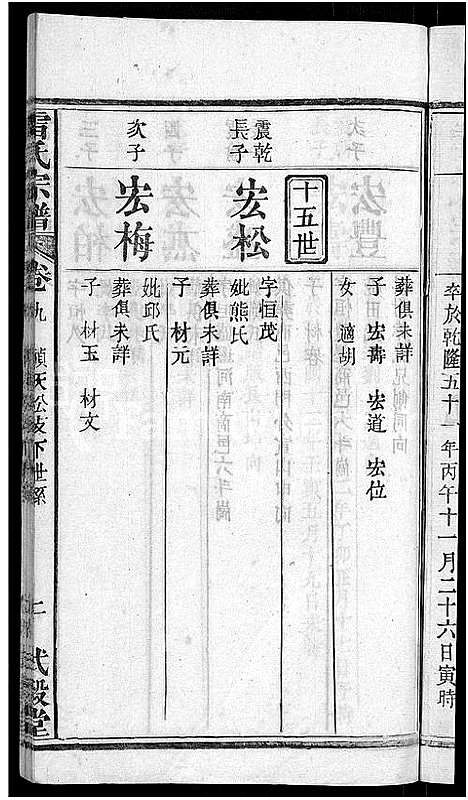 卒於乾隆五十一年丙午十一月二十六日寅時
葬俱未詳
子田 宏壽 宏道 宏位
女 適胡
十五世
震乾長子
宏松
字恒茂
妣熊氏
葬俱未詳
子 材元
次子
宏梅
妣邱氏
葬俱未詳
子 材玉 材文
雷氏宗譜
卷九
天松支下世系
二